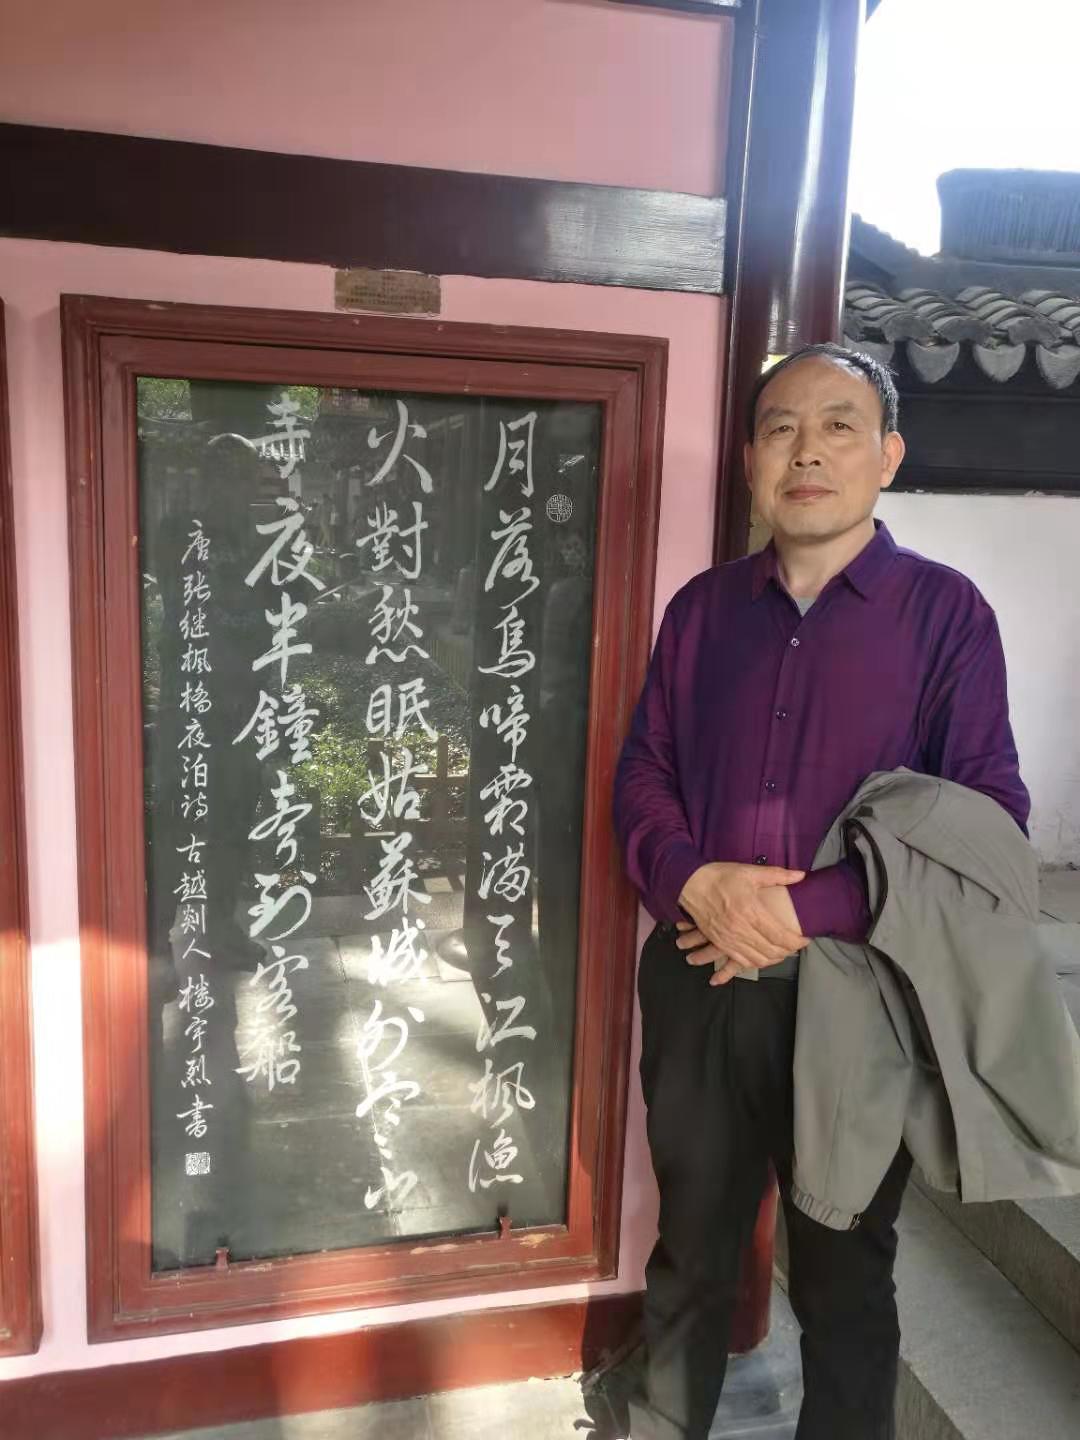 月落烏啼霜满天江枫漁
火對愁眠姑蘇城外寒山
寺夜半鐘声到客船
唐张继枫橋夜泊诗 古越剡人 楼宇烈 书